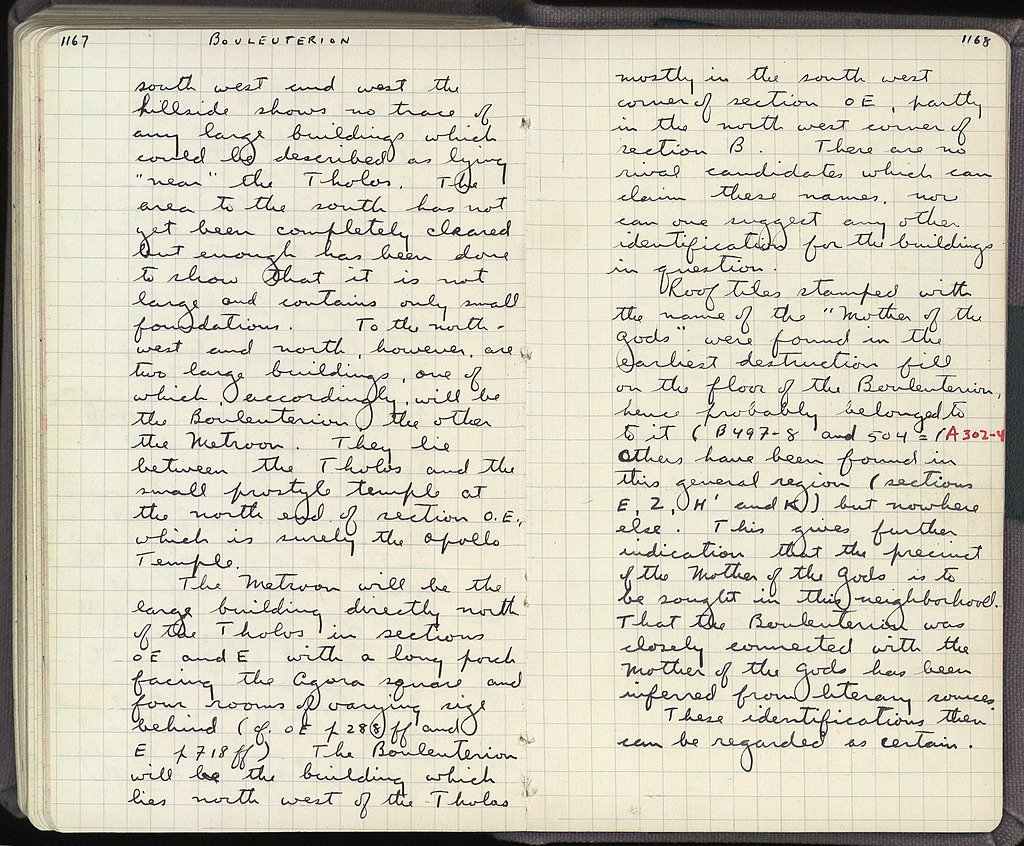 1167 BOULEUTERION
south west and west the
hillside shows no trace of
any large buildings which
could be described as lying
"near" the Tholos. The
area to the south has not
yet been completely cleared
but enough has been done
to show that it is not
large and contains only small
foundations. To the north-
west and north, however, are
two large buildings, one of
which, accordingly, will be
the Bouleuterion, the other
the Metroon. They lie
between the Tholos and the
small prostyle temple at
the north end of section O.E.,
which is surely the Apollo
Temple.
The Metroon will be the
large building directly north
of the Tholos in sections
OE and E with a long porch
facing the Agora square and
four rooms of varying size
behind (cf. OE p 288 ff and
E p 718 ff). The Bouleuterion
will be the building which
lies north west of the Tholos
1168
mostly in the south west
corner of section OE, partly
in the north west corner of
section B. There are no
rival candidates which can
claim these names, nor
can one suggest any other
identification for the buildings
in question.
Roof tiles stamped with
the name of the "Mother of the
Gods" were found in the
earliest destruction fill
on the floor of the Bouleuterion,
hence probably belonged to
to it (B 497-8 and 504 = (A 302-4
Others have been found in
this general region (sections
E, Z, H' and K) but nowhere
else. This gives further
indication that the precinct
of the Mother of the Gods is to
be sought in this neighborhood.
That the Bouleuterion was
closely connected with the
Mother of the Gods has been
inferred from literary sources.
These identifications then
can be regarded as certain.